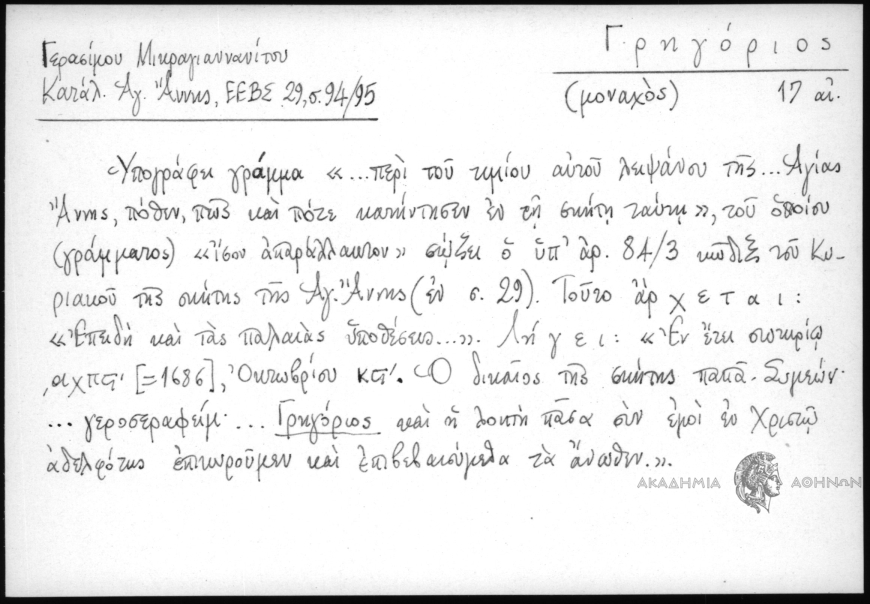 Γρηγόριος
(μοναχὸς) 17 αἰ.
Γερασίμου Μικραγιαννανίτου
Κατάλ. Ἁγ. Ἄννης, ΕΕΒΣ 29, σ. 94/95
Ὑπογράφει γράμμα «...περὶ τοῦ τιμίου αὐτοῦ λειψάνου τῆς... Ἁγίας
Ἄννης, πόθεν, πῶς καὶ πότε κατήντησεν ἐν τῇ σκήτῃ ταύτῃ», τοῦ ὁποίου
(γράμματος) «ἴσον ἀπαράλλακτον» σῴζει ὁ ὑπ' ἀρ. 84/3 κῶδιξ τοῦ Κυ-
ριακοῦ τῆς σκήτης τῆς Ἁγ. Ἄννης (ἐν σ. 29). Τοῦτο ἄρχεται:
«Ἐπειδὴ καὶ τὰς παλαιὰς ὑποθέσεις...». Λήγει: «Ἐν ἔτει σωτηρίῳ
͵αχπϛʹ [=1686], Ὀκτωβρίου κϛʹ. Ὁ δικαῖος τῆς σκήτης παπᾶ-Συμεών·
... γεροσεραφείμ· ... Γρηγόριος καὶ ἡ λοιπὴ πᾶσα σὺν ἐμοὶ ἐν Χριστῷ
ἀδελφότης ἐπικυροῦμεν καὶ ἐπιβεβαιούμεθα τὰ ἄνωθεν.».
ΑΚΑΔΗΜΙΑ ΑΘΗΝΩΝ